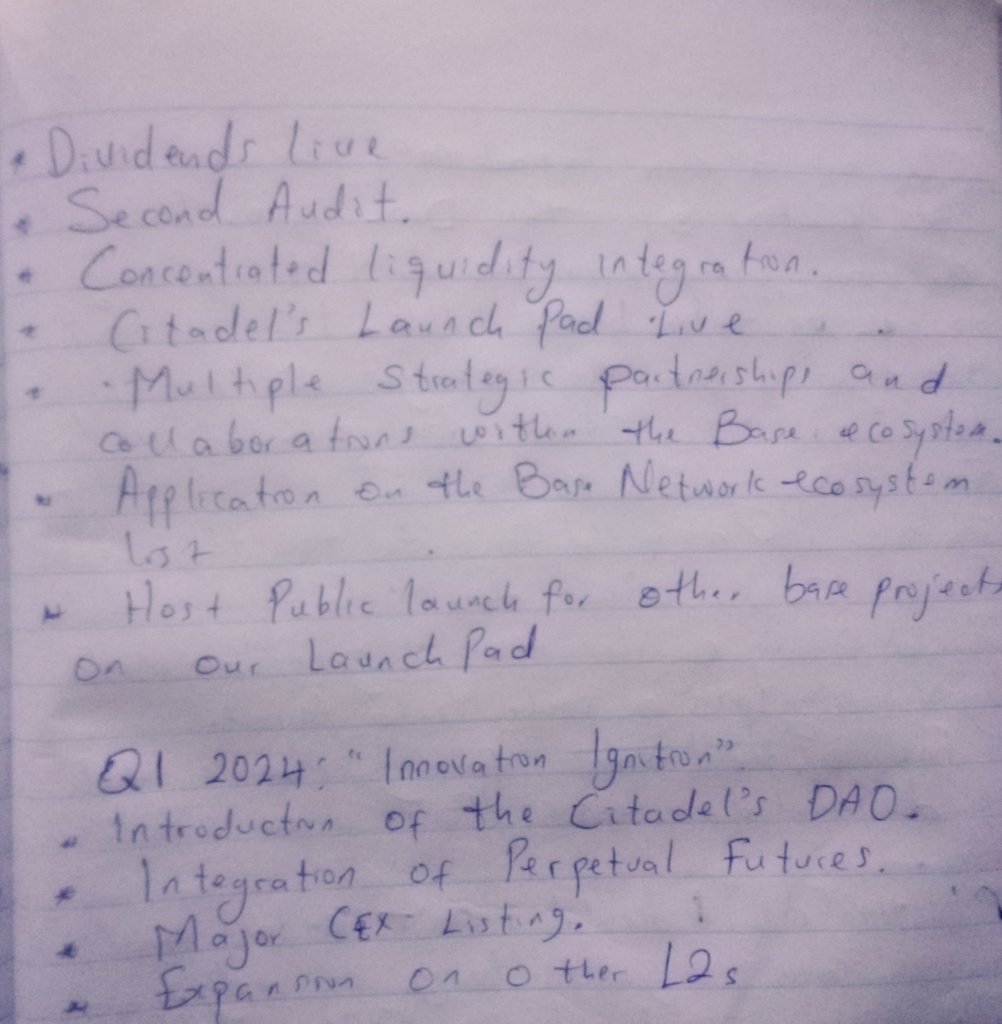 * Dividends live
* Second Audit.
* Concentrated liquidity integration.
* Citadel's Launch Pad Live
* Multiple strategic partnerships and
collaborations within the Base ecosystem.
* Application on the Base Network ecosystem
list
* Host Public launch for other base projects
on our Launch Pad
Q1 2024: "Innovation Ignition"
* Introduction of the Citadel's DAO.
* Integration of Perpetual Futures.
* Major CEX Listing.
* Expansion on other L2s